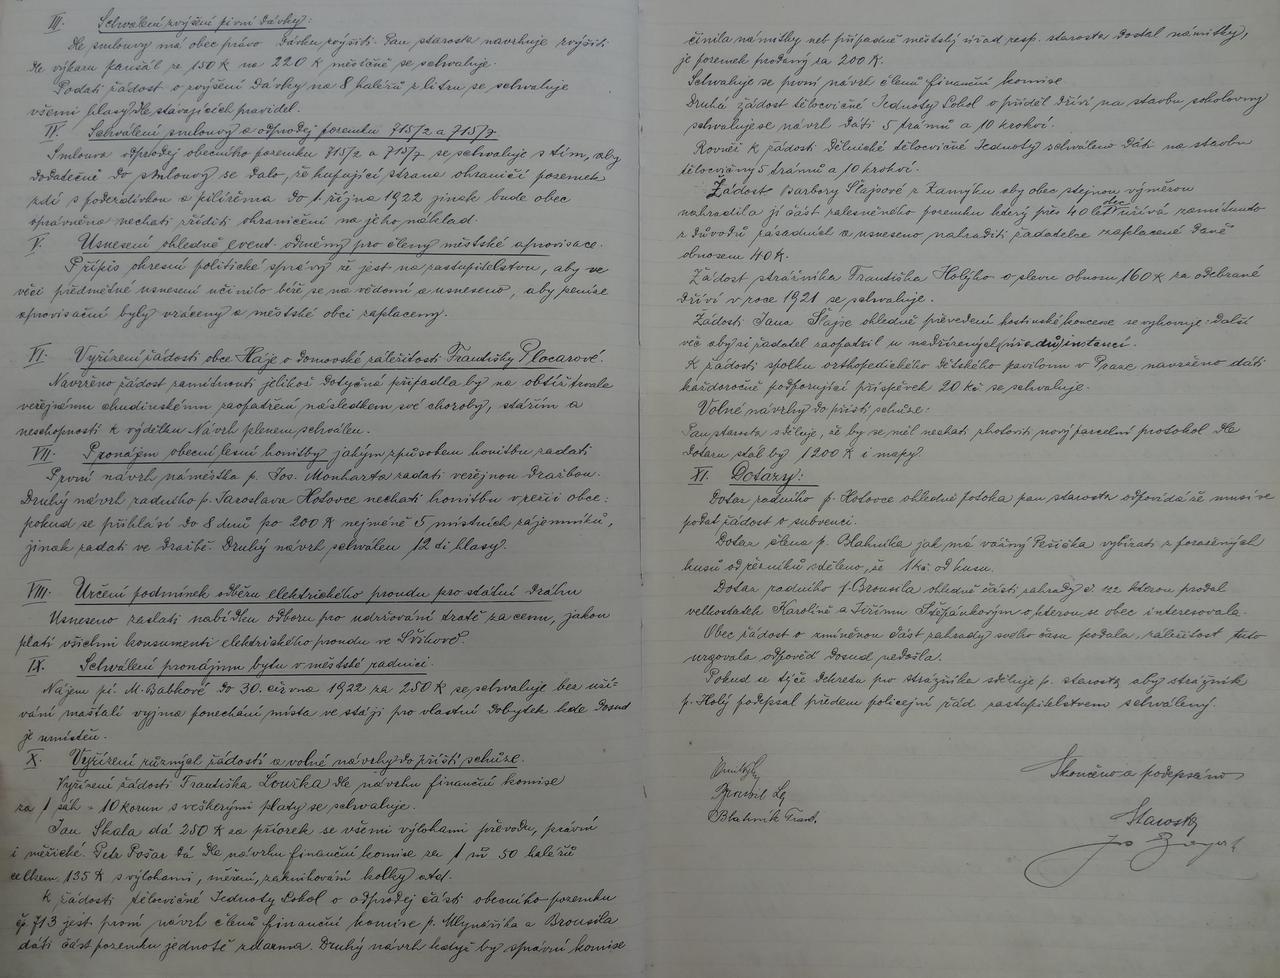 III. Schválení zvýšení pivní dávky:
Dle smlouvy má obec právo dávku zvýšiti. Pan starosta navrhuje zvýšiti
dle výkazu paušál ze 150 K na 220 K měsíčně se schvaluje.
Podati žádost o zvýšení dávky na 8 haléřů z litru se schvaluje
všemi hlasy dle stávajících pravidel.
IV. Schválení smlouvy o odprodej pozemku 715/2 a 715/7
Smlouva odprodej obecního pozemku 715/2 a 715/7 se schvaluje s tím, aby
dodatečně do smlouvy se dalo, že kupující strana ohraničí pozemek
zdí s podezdívkou a pilířema do 1. října 1922 jinak bude obec
oprávněna nechati zříditi ohraničení na jeho náklad.
V. Usnesení ohledně event. odměny pro členy městské aprovisace.
Přípis okresní politické správy že jest na zastupitelstvu, aby ve
věci předmětné usnesení učinilo béře se na vědomí a usneseno, aby peníze
aprovisační byly vráceny a městské obci zaplaceny.
VI. Vyřízení žádosti obce Háje o domovské záležitosti Františky Plocarové.
Navrženo žádost zamítnouti jelikož dotyčná připadla by na obtíž trvale
veřejnému chudinskému zaopatření následkem své choroby, stářím a
neschopností k výdělku Návrh plenem schválen.
VII. Pronájem obecní lesní honitby jakým způsobem honitbu zadati
První návrh náměstka p. Jos. Monharta zadati veřejnou dražbou.
Druhý návrh radního p. Jaroslava Hotovce nechati honitbu v režii obce:
pokud se přihlásí do 8 dnů po 200 K nejméně 5 místních zájemníků,
jinak zadati ve dražbě. Druhý návrh schválen 12 di hlasy.
VIII. Určení podmínek odběru elektrického proudu pro státní dráhu
Usneseno zaslati nabídku odboru pro udržování tratě za cenu, jakou
platí všichni konsumenti elektrického proudu ve
IX. Schválení pronájmu bytu v městské radnici.
Nájem pí. M. Babkové do 30. června 1922 za 250 K se schvaluje bez uží-
vání maštalí vyjma ponechání místa ve stáji pro vlastní dobytek kde dosud
je umístěn.
X. Vyřízení různých žádostí a volné návrhy do příští schůze.
Vyřízení žádosti Františka Loužka dle návrhu finanční komise
za 1 sáh = 10 korun s veškerými platy se schvaluje.
Jan Skala dá 250 K za příorek se všemi výlohami převodu, právní
i měřické. Petr Pošar dá dle návrhu finanční komise za 1 m² 50 haléřů
celkem 135 K s výlohami, měření, zaknihování kolky atd.
K žádosti tělocvičné Jednoty Sokol o odprodej části obecního pozemku
čp. 713 jest první návrh členů finanční komise p. Mlynářika a Brousila
dáti část pozemku jednotě zdarma. Druhý návrh když by správní komise
činila námitky neb případně městský úřad resp. starosta dostal námitky,
je pozemek prodaný za 200 K.
Schvaluje se první návrh členů finanční komise.
Druhá žádost tělocvičné Jednoty Sokol o příděl dříví na stavbu sokolovny
schvaluje se návrh dáti 5 trámů a 10 krokví.
Rovněž k žádosti Dělnické tělocvičné Jednoty schváleno dáti na stavbu
tělocvičny 5 trámů a 10 krokví.
Žádost Barbory Šlajsové z Zamyšku aby obec stejnou výměrou
nahradila jí část zalesněného pozemku který přes 40 let obec užívá zamítnuto
z důvodů zásadních a usneseno nahraditi žadatelce zaplacené daně
obnosem 40 K.
Žádost strážníka Františka Holýho o slevu obnosu 160 K za odebrané
dříví v roce 1921 se schvaluje.
Žádosti Jana Šlajse ohledně převedení hostinské koncese se vyhovuje: další
věc aby si žadatel zaopatřil u nadřízených (úřadů) instancí.
K žádosti spolku orthopedického dětského pavilonu v Praze navrženo dáti
každoročně podporující příspěvek 20 kč se schvaluje.
Volné návrhy do příští schůze:
Pan starosta sděluje, že by se měl nechati zhotoviti nový parcelní protokol dle
dotazu stál by 1200 K i mapy.
XI. Dotazy:
Dotaz radního p. Hotovce ohledně potoka pan starosta odpovídá že musí se
podat žádost o subvenci.
Dotaz člena p. Blahníka jak má vážný Pešička vybírati z poražených
kusů od řezníků sděleno, že 1 kč od kusu.
Dotaz radního p. Brousila ohledně části zahrady č. 122 kterou prodal
velkostatek Karolíně a Jeřímu Štěpánkovým o kterou se obec interesovala
Obec žádost o zmíněnou část zahrady svého času podala, záležitost tuto
urgovala odpověď dosud nedošla.
Pokud se týče dekretu pro strážníka sděluje p. starosta aby strážník
p. Holý podepsal předem policejní řád zastupitelstvem schválený.
Skončeno a podepsáno
Blahník Frant.
Starosta